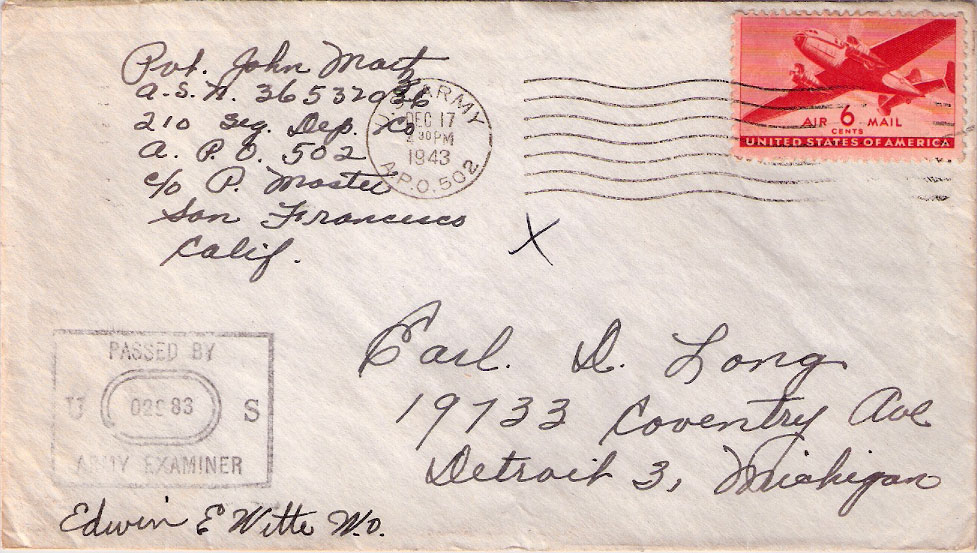 Pvt. John Motz
A.S.N. 36532036
210 Seg. Dep. Co
A. P. O. 502
c/o P. Master
San Francisco
Calif.
U.S. ARMY
DEC 17
4 30 PM
1943
A.P.O. 502
AIR 6 MAIL
CENTS
UNITED STATES OF AMERICA
X
PASSED BY
U S
ARMY EXAMINER
Earl. D. Long
19733 Coventry Ave
Detroit 3, Michigan
Edwin E Witte W.O.